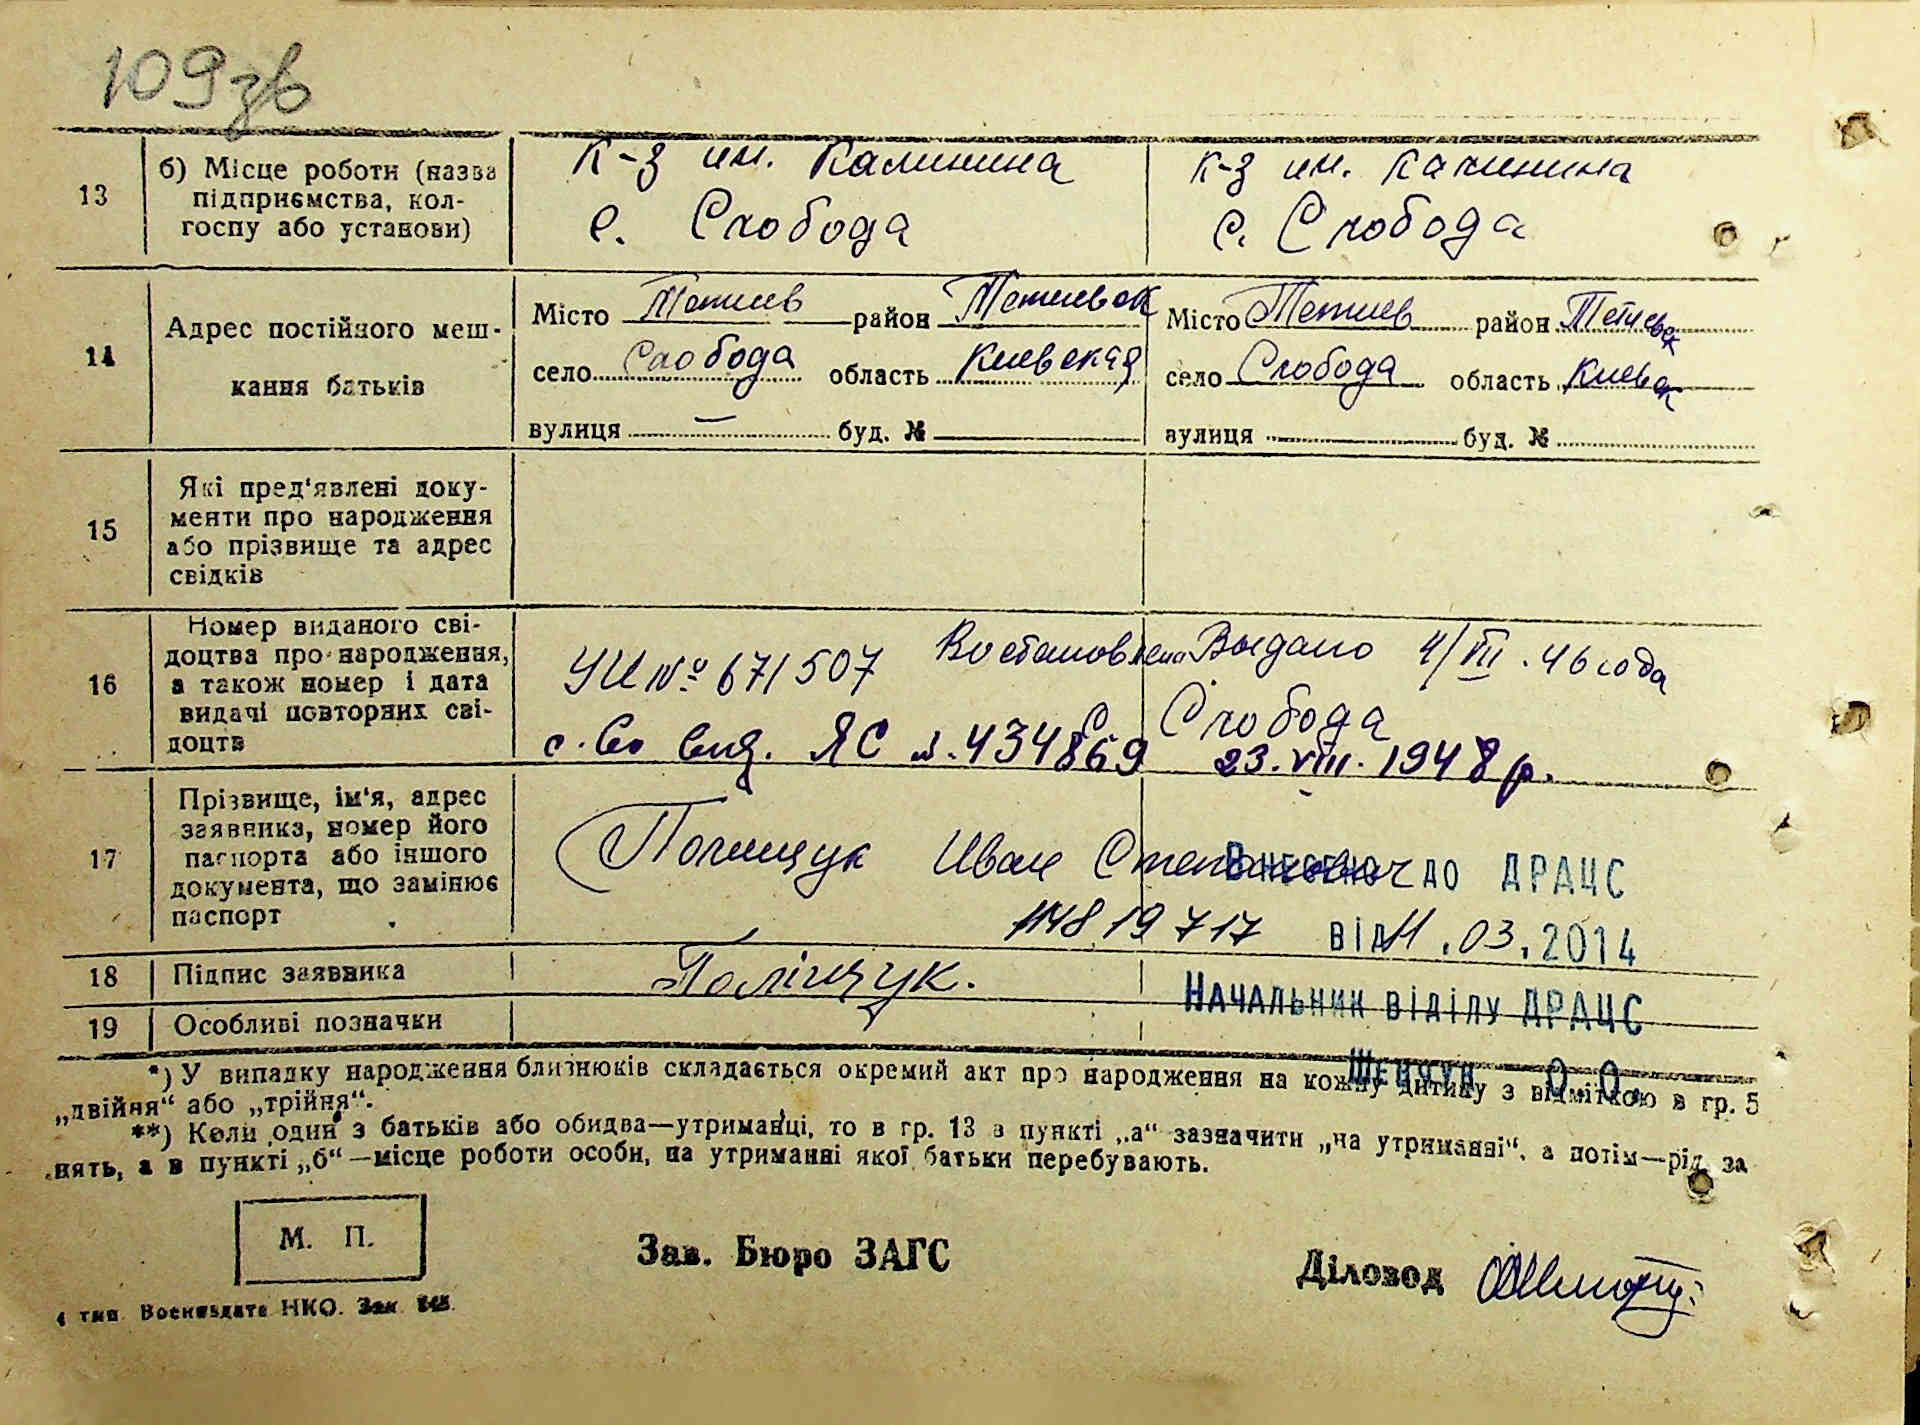 109зв
13 б) Місце роботи (назва підприємства, кол- госпу або установи)
к-з им. Калинина к-з им. Калинина
с. Слобода с. Слобода
14 Адрес постійного меш- кання батьків
Місто Тетиев район Тетиевск Місто Тетиев район Тетиевск
село Слобода область Киевская село Слобода область Киевск
вулиця — буд. № вулиця буд. №
15 Які пред'явлені доку- менти про народження або прізвище та адрес свідків
16 Номер виданого сві- доцтва про народження, а також номер і дата видачі повторних сві- доцтв
УИ № 671507 Востановлена Выдано 4/VII.46 года
с. Слобода
с. во вид. ЯС №.434869 23.VIII.1948 р.
17 Прізвище, ім'я, адрес заявника, номер його паспорта або іншого документа, що замінює паспорт
Полищук Иван Степанович
Внесено до ДРАЦС
114819717 від 11.03.2014
18 Підпис заявника Поліщук.
Начальник відділу ДРАЦС
19 Особливі позначки
О.О.
*) У випадку народження близнюків складається окремий акт про народження на кожну дитину з відміткою в гр. 5
„двійня“ або „трійня“.
**) Коли один з батьків або обидва—утриманці, то в гр. 13 в пункті „а“ зазначити „на утриманні“, а потім—рід за
нять, а в пункті „б“—місце роботи особи, на утриманні якої батьки перебувають.
М. П.
Зав. Бюро ЗАГС
Діловод
4 тип. Воениздата НКО. Зак.